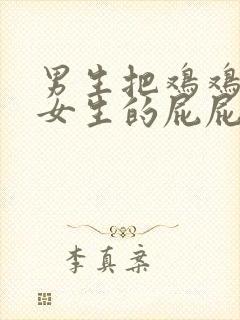 男生把鸡鸡
女生的屁屁
李真案